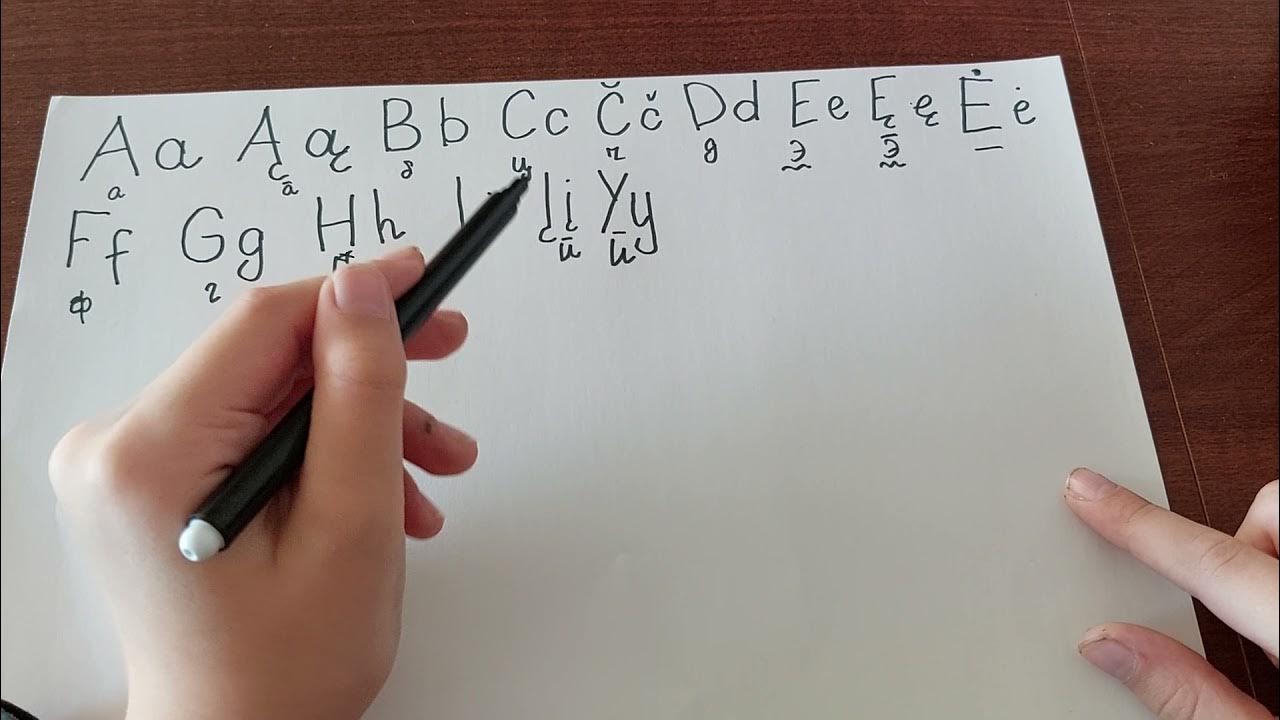 Aa Ąą Bb Cc Čč Dd Ee Ęę Ėė
а а̄ б ц ч д э э̄
Ff Gg Hh Į į Yy
ф г ӣ ӣ